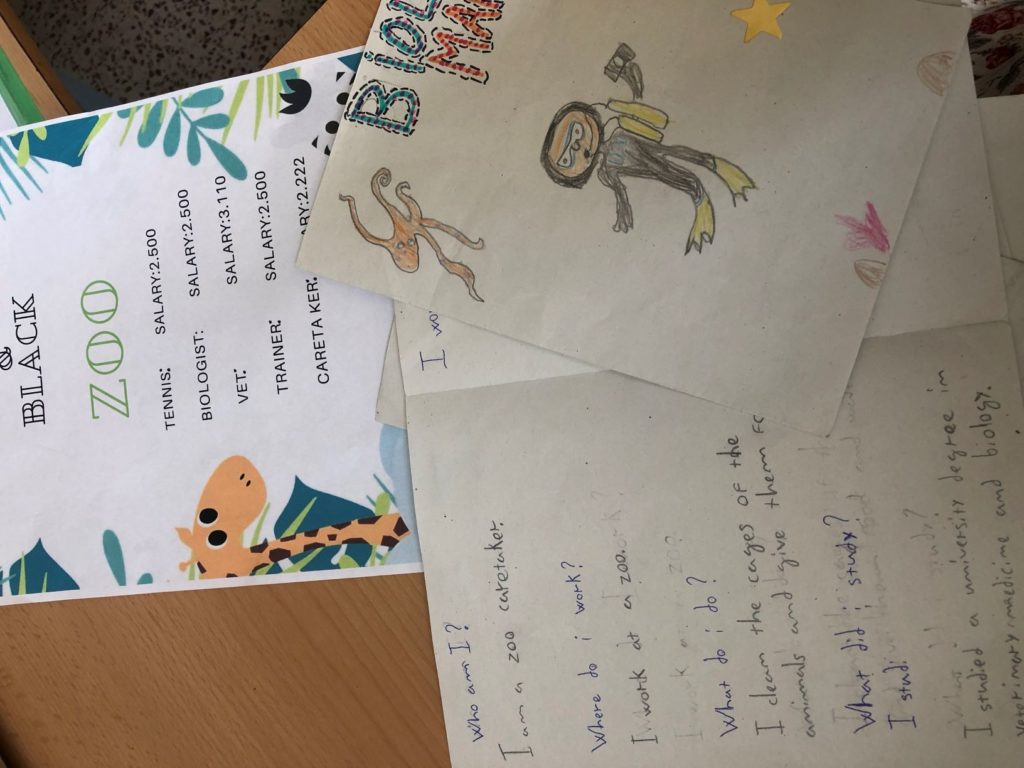 &
BLACK
ZOO
TENNIS: SALARY:2.500
BIOLOGIST: SALARY:2.500
VET: SALARY:3.110
TRAINER: SALARY:2.500
CARETA KER: ARY:2.222
BIOL
MAR
I wo
Who am I?
I am a zoo caretaker.
Where do i work?
I work at a zoo.
What do i do?
I clean the cages of the
animals and give them
What did i study?
I studi
I studied a university degree in
veterinary medicine and biology.